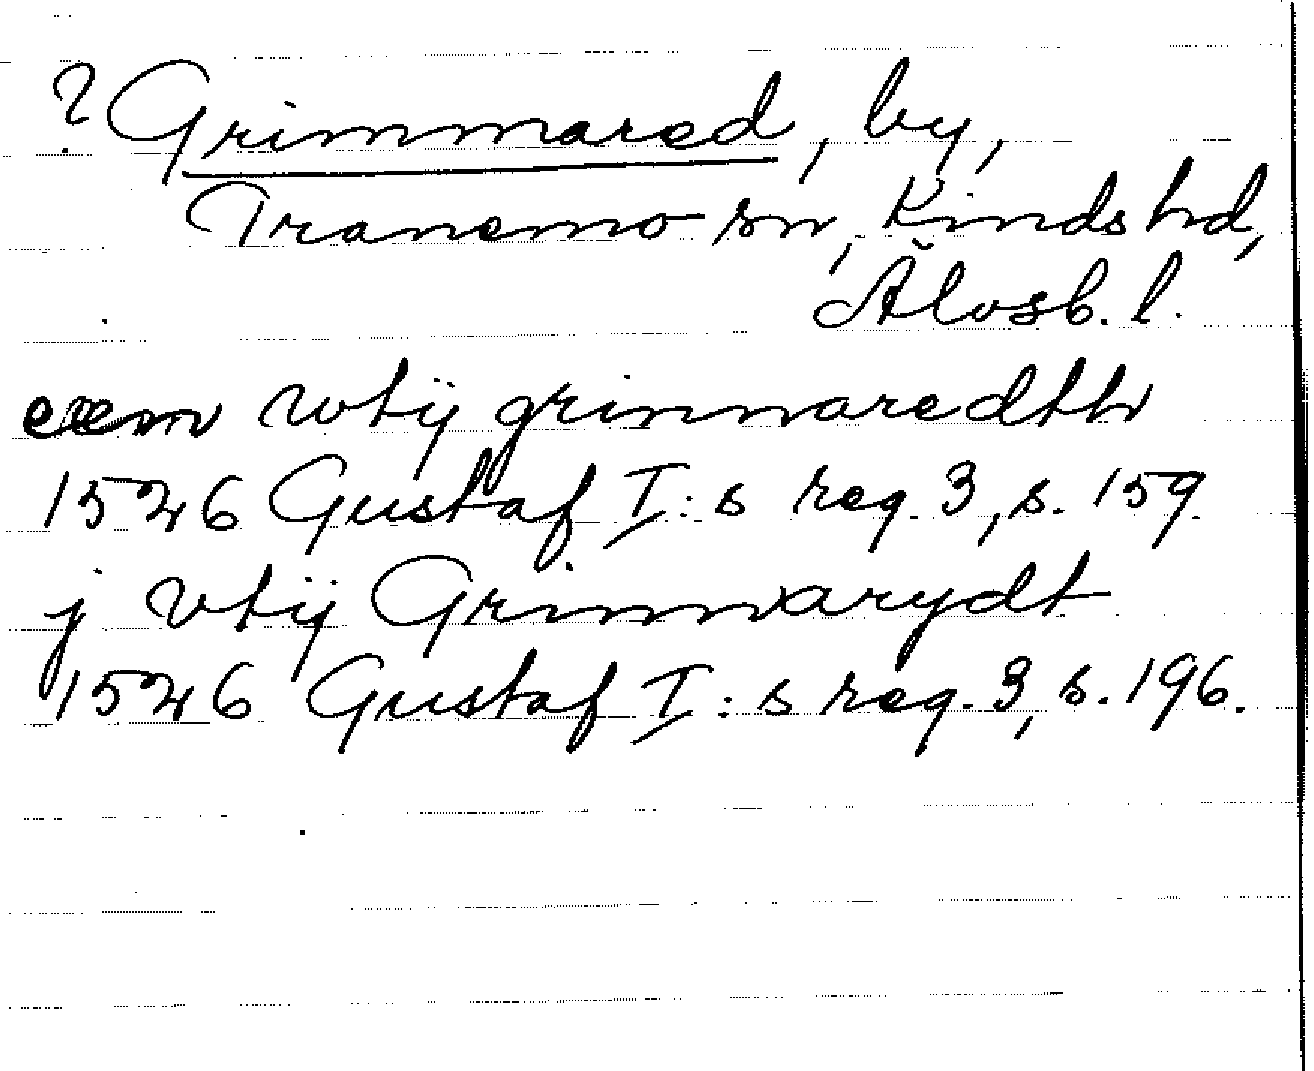 ? Grimmared, by,
Tranemo sn, Kinds hd,
Älvsb. l.
eem wtij grimmaredth
1526 Gustaf I:s reg. 3, s. 159.
j vtij Grimarydt
1526 Gustaf I:s reg. 3, s. 196.